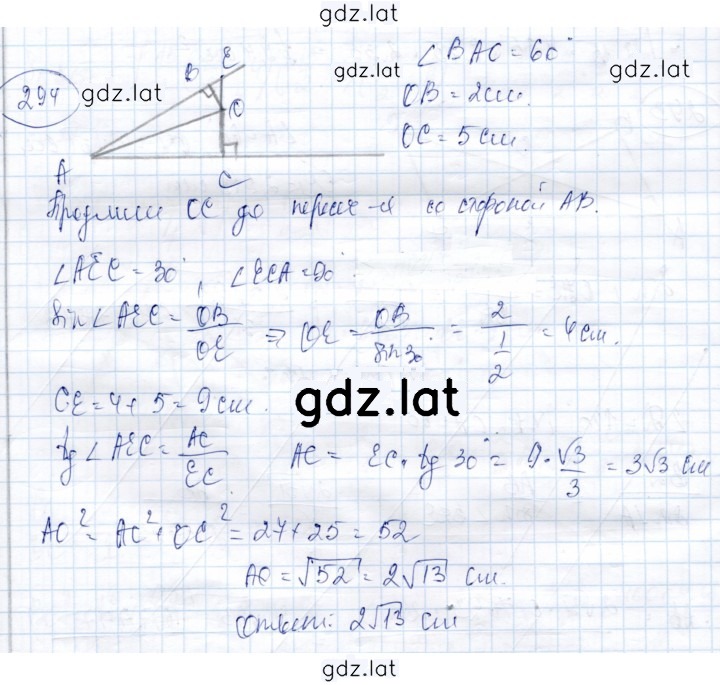 gdz.lat
294
gdz.lat
B E
O
A
C
gdz.lat
∠BAC = 60°
OB = 2 см.
OC = 5 см.
gdz.lat
Продлили OC до пересеч-я со стороной AB.
∠AEC = 30°, ∠ECA = 90°
Sin∠AEC = OB/OE ⇒ OE = OB/sin30° = 2/(1/2) = 4 см.
CE = 4 + 5 = 9 см.
gdz.lat
tg∠AEC = AC/EC AC = EC · tg 30° = 9 · √3/3 = 3√3 см
AO² = AC² + OC² = 27 + 25 = 52
AO = √52 = 2√13 см.
Ответ: 2√13 см
gdz.lat